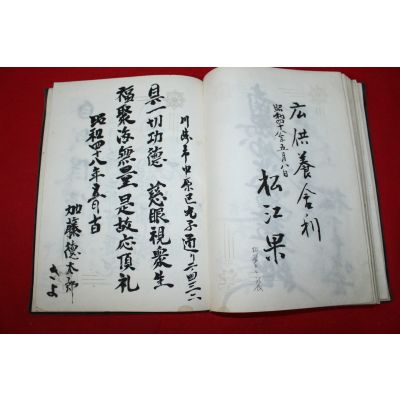 広供養舎利
昭和四十八年五月八日
松江果
川崎市中原区丸子通り
具一切功徳 慈眼視衆生
福聚海無量是故応頂礼
昭和四十八年五月吉
加藤徳太郎
きよ